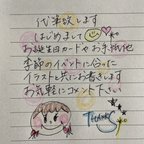 代筆致します
はじめまして
お誕生日カードやお手紙他
季節のイベントに合った
イラストと共にお書きします
お気軽にコメント下さい
Thank